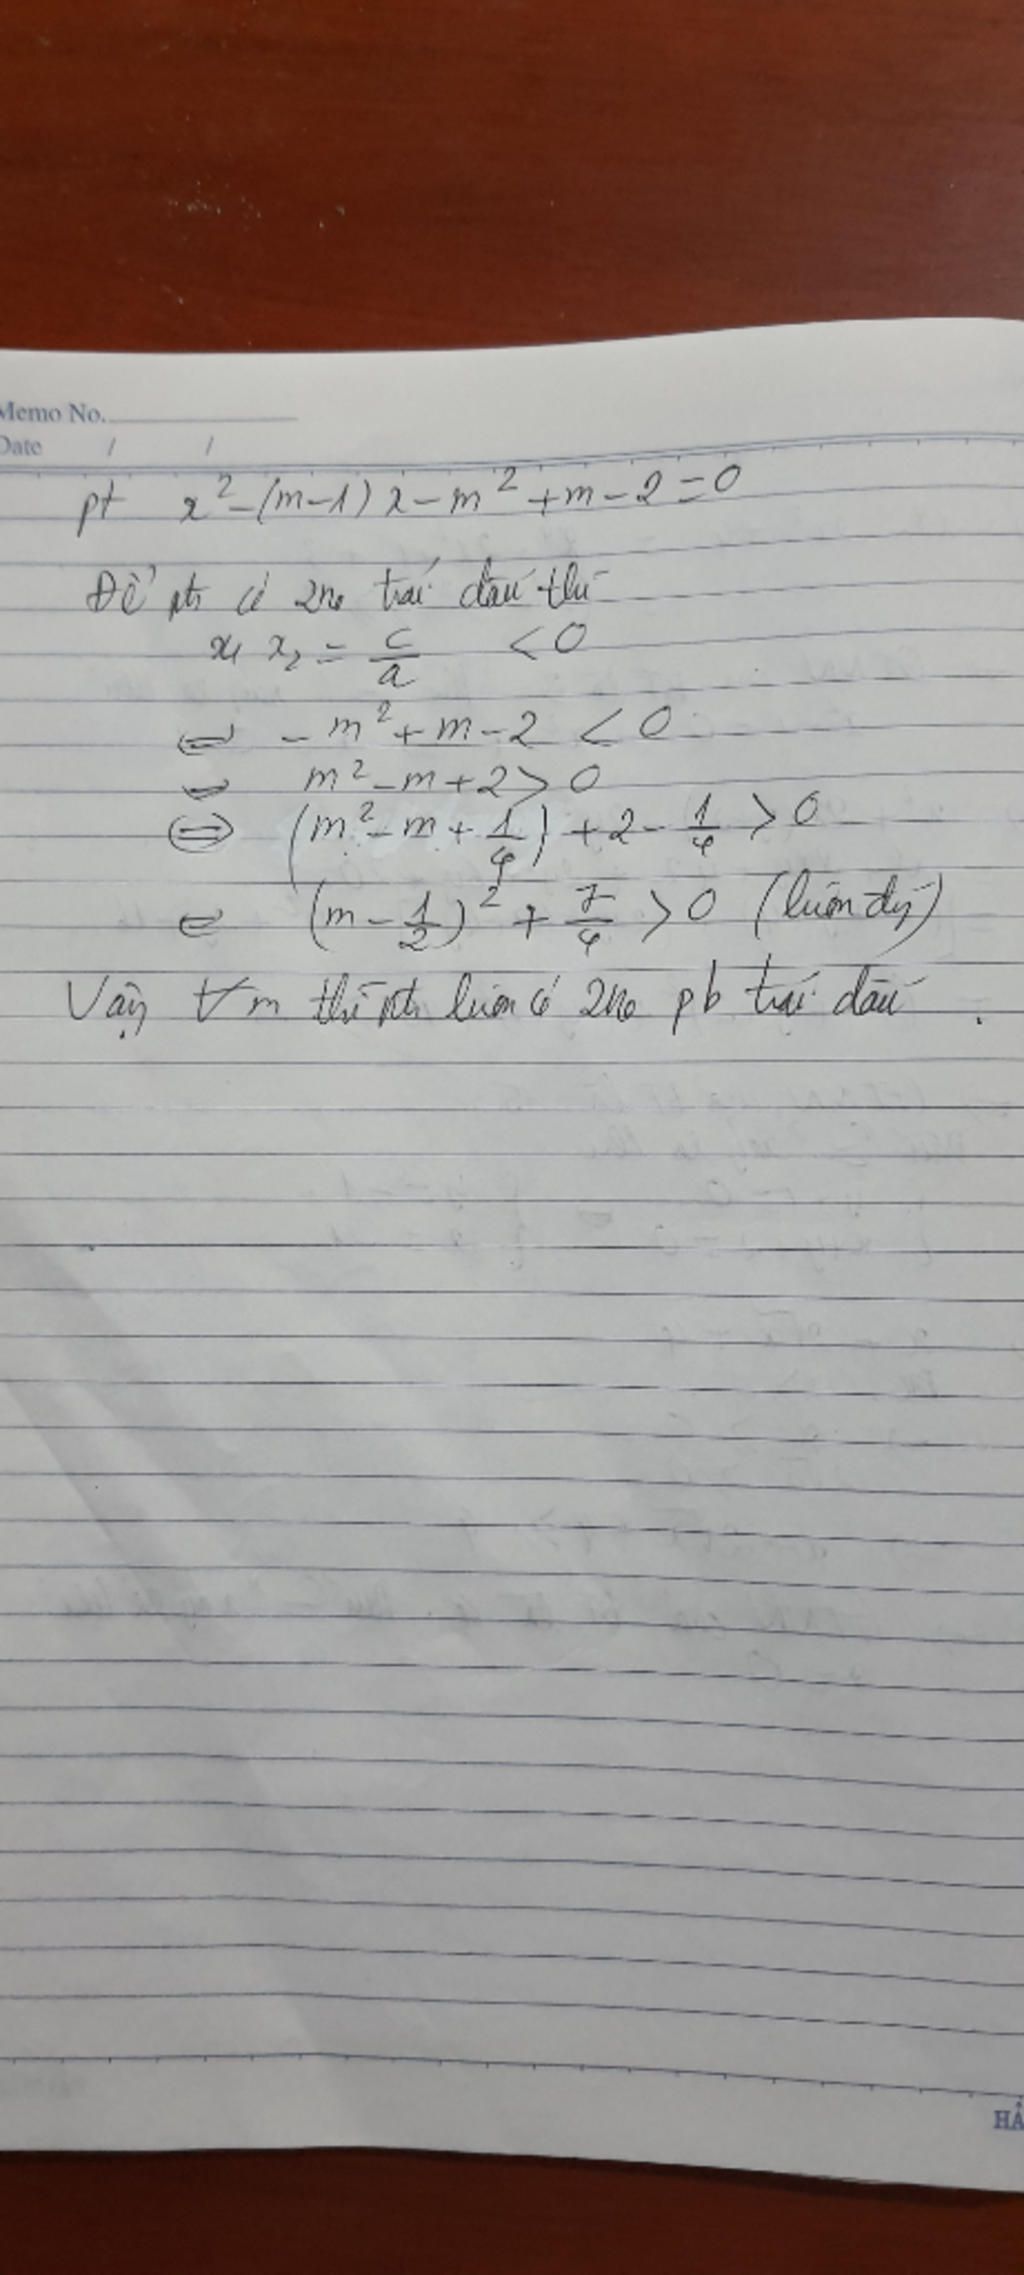 Memo No.
Date / /
pt x² - (m-1)x - m² + m - 2 = 0
Để pt có 2no trái dấu thì
x₁ x₂ = c/a < 0
⇔ - m² + m - 2 < 0
⇔ m² - m + 2 > 0
⇔ (m² - m + 1/4) + 2 - 1/4 > 0
⇔ (m - 1/2)² + 7/4 > 0 (luôn đg)
Vậy ∀m thì pt luôn có 2no pb trái dấu.
HẢ